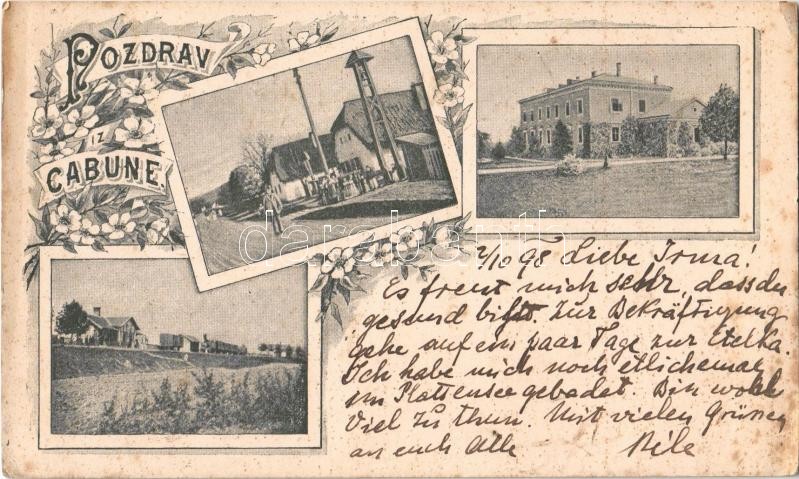 POZDRAV
IZ
CABUNE.
darabanth
2/10 98 Liebe Irma!
Es freut mich sehr, dass du
gesund bist. Zur Bekräftigung
gehe auf ein paar Tage zur Etelka.
Ich habe mich noch etlichemal
im Plattensee gebadet. Bin wohl
Viel zu thun. Mit vielen Grüssen
an euch Alle